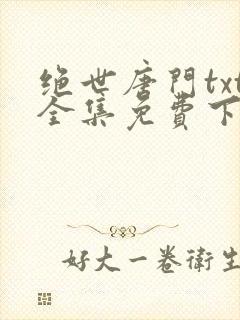 绝世唐門txt
全集免費下
好大一卷衛生